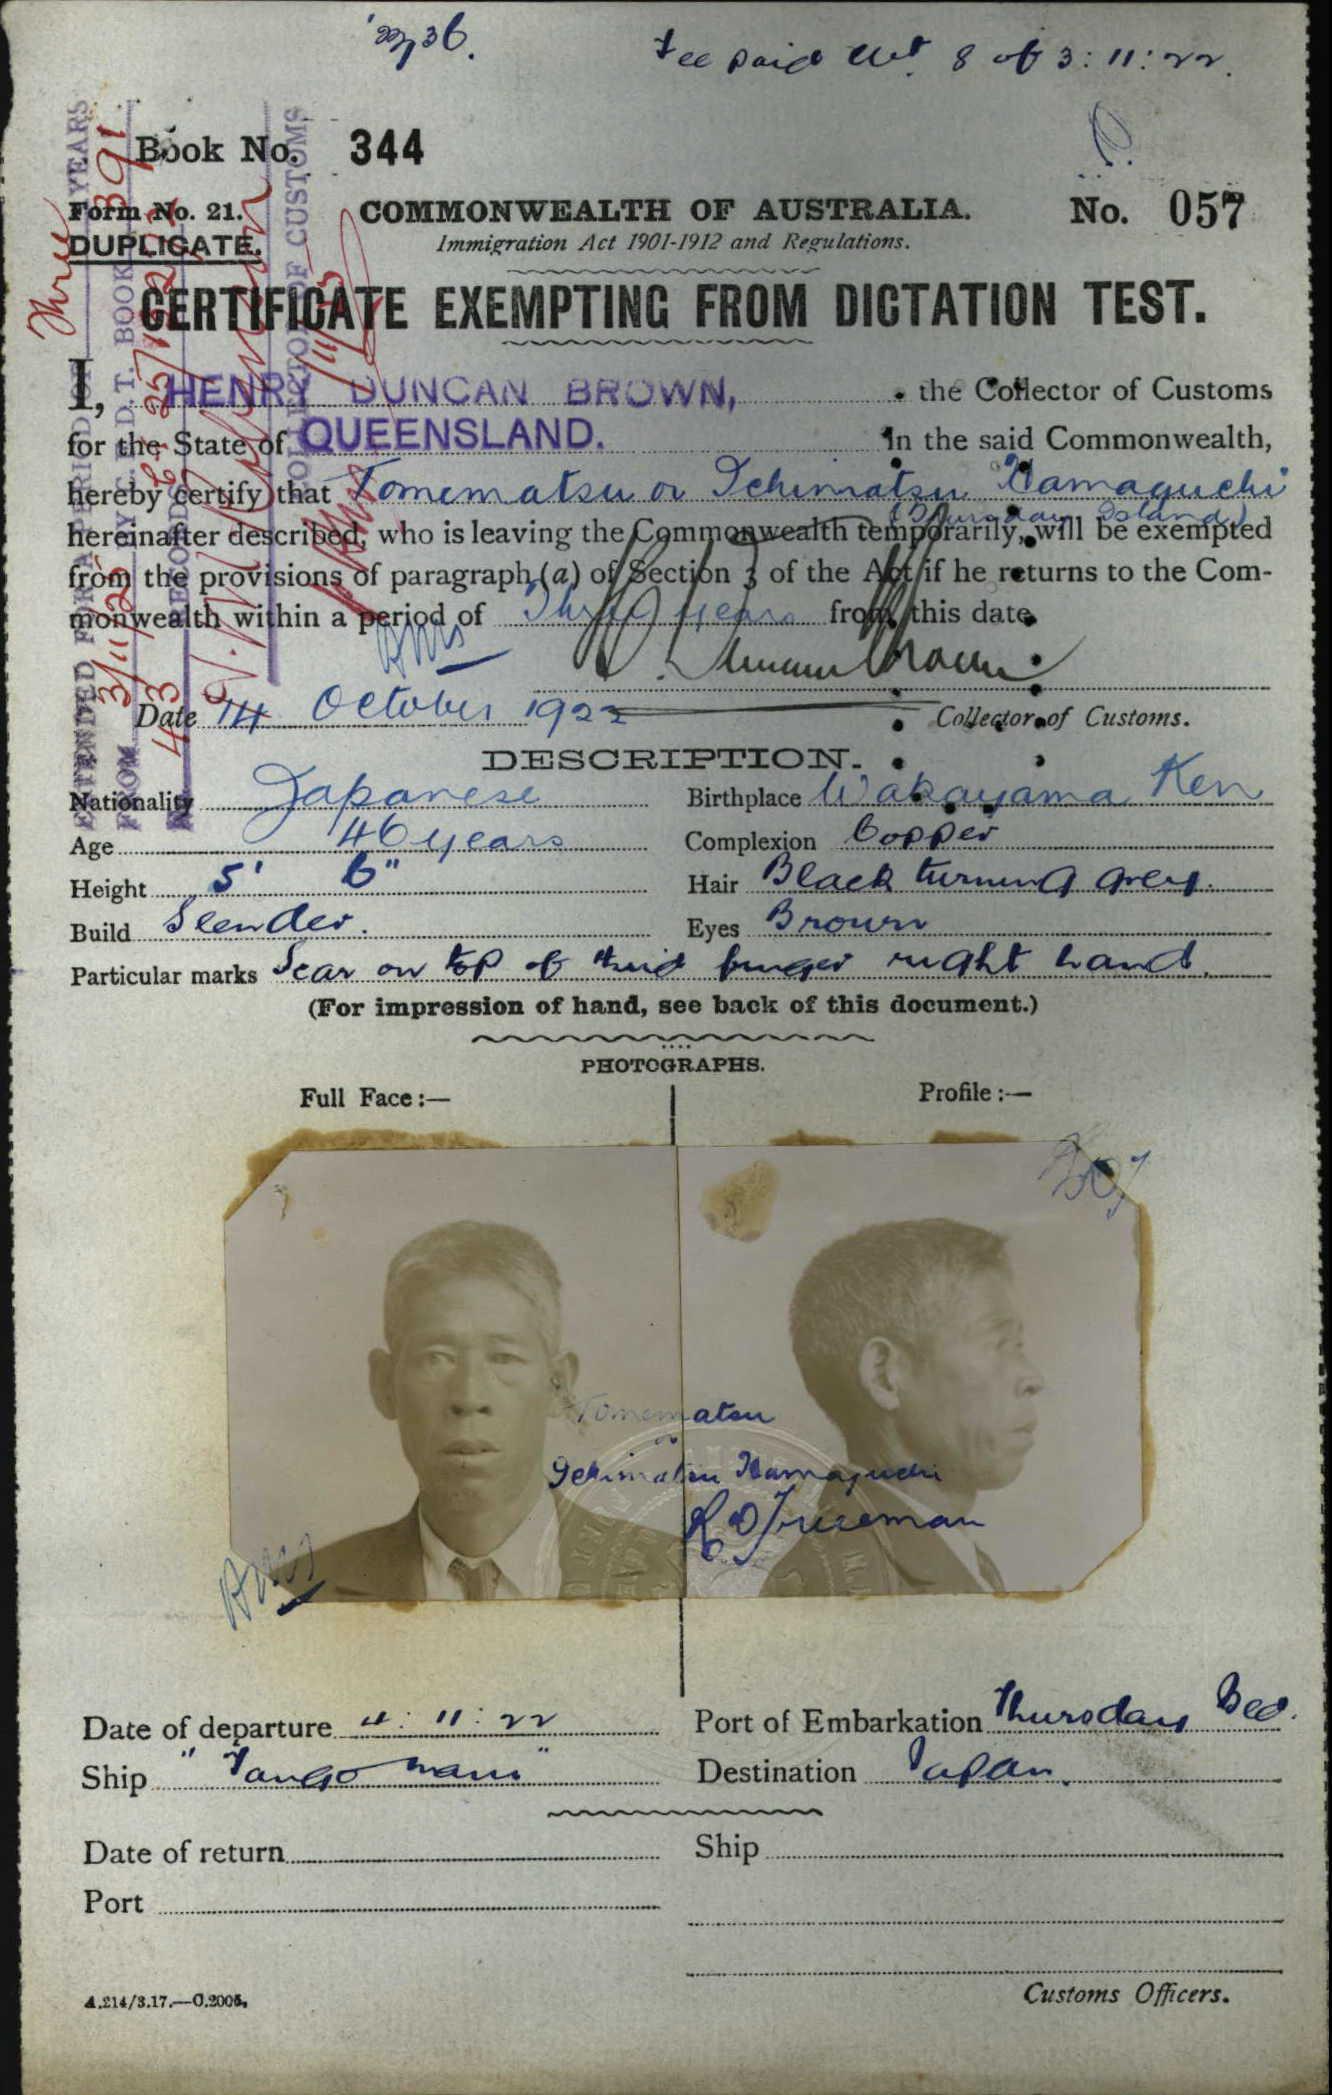 Fee paid Clt. 8 of 3:11:22.
Book No. 344
Form No. 21.
DUPLICATE.
COMMONWEALTH OF AUSTRALIA.
No. 057
Immigration Act 1901-1912 and Regulations.
CERTIFICATE EXEMPTING FROM DICTATION TEST.
I, HENRY DUNCAN BROWN, the Collector of Customs
for the State of QUEENSLAND. in the said Commonwealth,
hereby certify that Tomematsu or Ichimatsu Hamaguchi
(Thursday Island)
hereinafter described, who is leaving the Commonwealth temporarily, will be exempted
from the provisions of paragraph (a) of Section 3 of the Act if he returns to the Com-
monwealth within a period of Three years from this date.
H. Duncan Brown
Date 14 October 1922
Collector of Customs.
EXTENDED FOR A PERIOD OF Three YEARS
FROM 3/11/25 BY C.E.D.T. BOOK 391
COLLECTOR OF CUSTOMS
DESCRIPTION.
Nationality Japanese Birthplace Wakayama Ken
Age 46 years Complexion Copper
Height 5' 6" Hair Black turning grey.
Build Slender. Eyes Brown
Particular marks Scar on top of third finger right hand.
(For impression of hand, see back of this document.)
PHOTOGRAPHS.
Full Face:— Profile:—
Tomematsu
or
Ichimatsu Hamaguchi
Date of departure 4:11:22 Port of Embarkation Thursday Isld.
Ship "Tango Maru" Destination Japan.
Date of return Ship
Port
Customs Officers.
A.214/3.17.—C.2005.